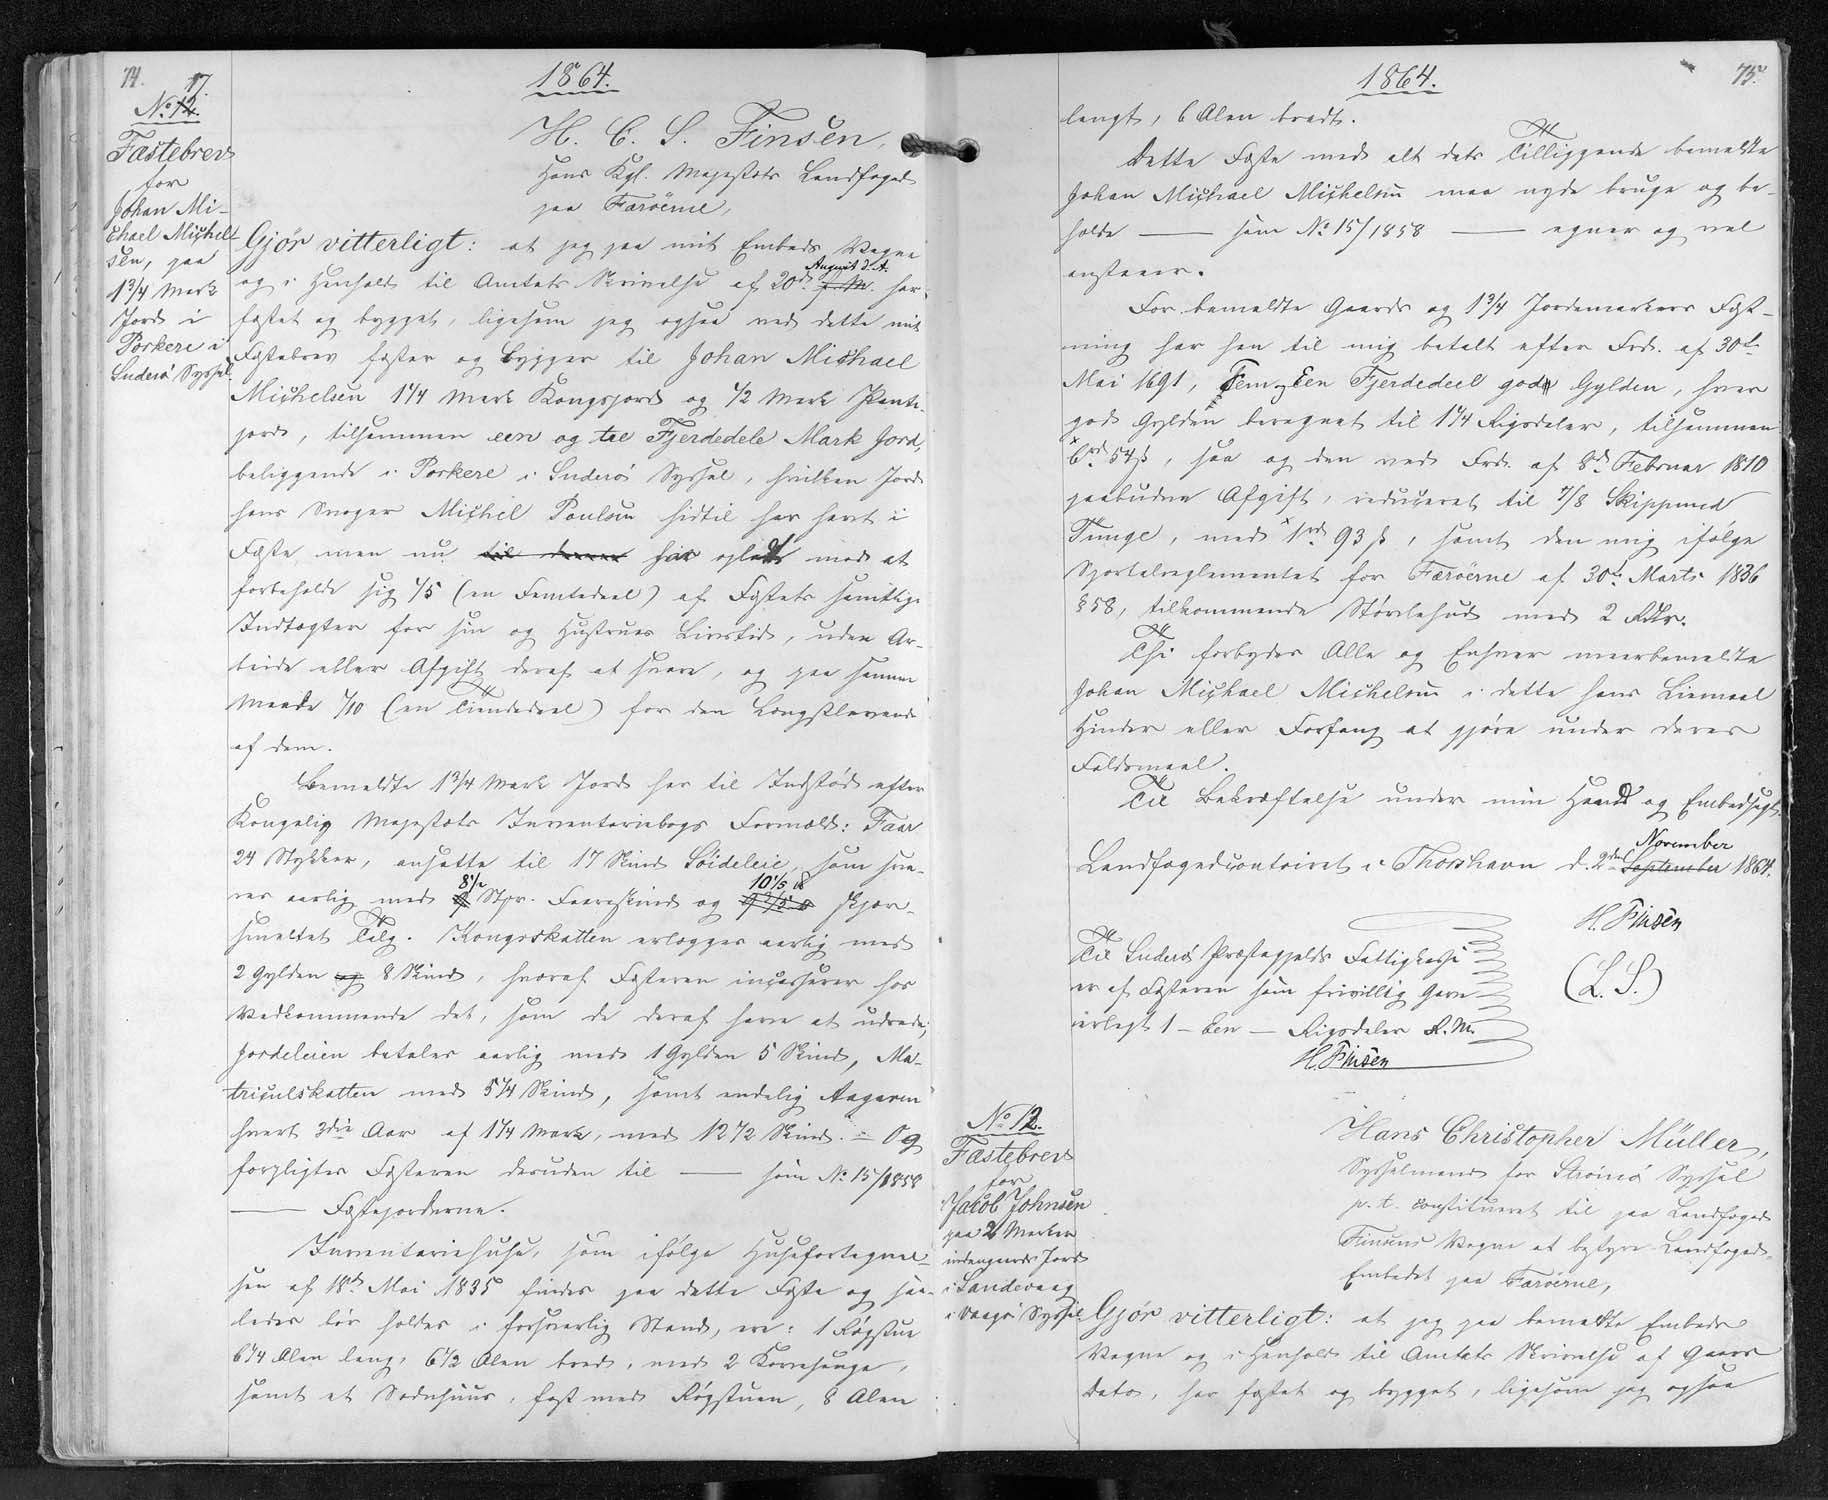 74.
1864.
17.
No 12.
Fæstebrev
for
Johan Mi-
chael Michel-
sen, paa
1 3/4 Mark
Jord i
Porkere i
Suderø Syssel.
H. C. S. Finsen,
Hans Kgl. Majestæts Landfoged
paa Færöerne,
Gjør vitterligt: at jeg paa mit Embeds Vegne
og i Henhold til Amtets Skrivelse af 20de f. M. August d. A. har
fæstet og bygget, ligesom jeg ogsaa ved dette mit
Fæstebrev fæster og bygger til Johan Michael
Michelsen 1 1/4 Mark Kongsjord og 1/2 Mark Præste-
jord, tilsammen een og tre Fjerdedele Mark Jord,
beliggende i Porkere i Suderø Syssel, hvilken Jord
hans Svoger Michel Poulsen hidtil har havt i
Fæste, men nu til denne har opladt mod at
forbeholde sig 1/5 (en Femtedeel) af Fæstets samtlige
Indtægter for sin og Hustrues Livstid, uden Ar-
beide eller Afgift deraf at svare, og paa samme
Maade 1/10 (en Tiendedeel) for den Længstlevende
af dem.
Bemeldte 1 3/4 Mark Jord har til Indstød efter
Kongelig Majestæts Inventariebogs Formæld: Faar
24 Stykker, ansatte til 17 Skind Söideleie, som sva-
res aarlig med 9 8 1/2 Stpr. Faareskind og 9 2/5 10 1/5 ℔ skjær-
smeltet Talg. Kongsskatten erlægges aarlig med
2 Gylden og 8 Skind, hvoraf Fæsteren incasserer hos
Vedkommende det, som de deraf have at udrede,
Jordeleien betales aarlig med 1 Gylden 5 Skind, Ma-
triculskatten med 5 1/4 Skind, samt endelig Aagaven
hvert 3die Aar af 1 1/4 Mark, med 12 1/2 Skind. = Og
forpligtes Fæsteren desuden til — som No 15/1858
— Fæstejorderne.
Inventariehuse, som ifølge Husefortegnel-
sen af 18de Mai 1835 findes paa dette Fæste og saa-
ledes bør holdes i forsvarlig Stand, ere: 1 Røgstue
6 1/4 Alen lang, 6 1/2 Alen bred, med 2 Kovesenge,
samt et Sodnhuus, fast med Røgstuen, 8 Alen
1864.
75.
langt, 6 Alen bredt.
Dette Fæste med alt dets Tilliggende bemeldte
Johan Michael Michelsen maa nyde bruge og be-
holde — som No 15/1858 — egner og vel
anstaaer.
For bemeldte Gaards og 1 3/4 Jordemarkers Fæst-
ning har han til mig betalt efter Frd. af 30te
Mai 1691, Fem og Een Fjerdedeel godt Gylden, hver
god Gylden beregnet til 1 1/4 Rigsdaler, tilsammen
6rd 54ß, saa og den ved Frd. af 8de Februar 1810
paabudne Afgift, reduceret til 7/8 Skippund
Tunge, med 1rd 93 ß, samt den mig ifølge
Sportelreglementet for Færöerne af 30te Marts 1836
§ 58, tilkommende Stövlehud med 2 Rdlr.
Thi forbydes Alle og Enhver meerbemeldte
Johan Michael Michelsen i dette hans Livmaal
Hinder eller Forfang at gjøre under deres
Faldsmaal.
Til Bekræftelse under min Haand og Embedssegl.
Landfogedcontoiret i Thorshavn d. 2den September November 1864.
H. Finsen
(L. S.)
Til Suderø Præstegjelds Fattigkasse
er af Fæsteren som frivillig Gave
erlagt 1 - Een - Rigsdaler R. M.
H. Finsen
No 12.
Fæstebrev
for
Jacob Johnsen
paa 2 Marker
indengaards Jord
i Sandevaag
i Vaagø Syssel
Hans Christopher Müller,
Sysselmand for Strømø Syssel
p. t. constitueret til paa Landfoged
Finsens Vegne at bestyre Landfoged-
Embedet paa Færöerne,
Gjør vitterligt: at jeg paa bemeldte Embeds
Vegne og i Henhold til Amtets Skrivelse af Gaars
Dato, har fæstet og bygget, ligesom jeg ogsaa